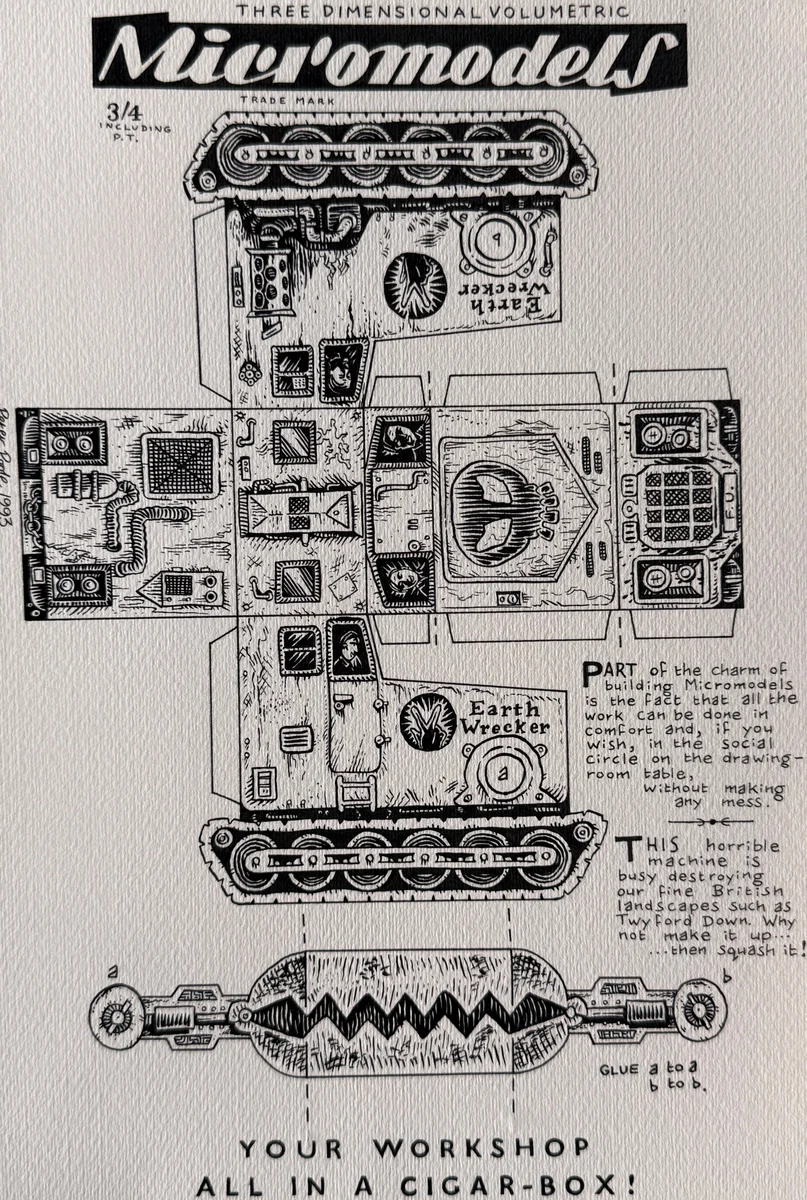 THREE DIMENSIONAL VOLUMETRIC
Micromodels
TRADE MARK
3/4
INCLUDING
P.T.
a
Earth
Wrecker
1993
F.U.
PART of the charm of
building Micromodels
is the fact that all the
work can be done in
comfort and, if you
wish, in the social
circle on the drawing-
room table,
without making
any mess.
Earth
Wrecker
a
THIS horrible
machine is
busy destroying
our fine British
landscapes such as
Twyford Down. Why
not make it up...
...then squash it!
a
b
GLUE a to a
b to b.
YOUR WORKSHOP
ALL IN A CIGAR-BOX!